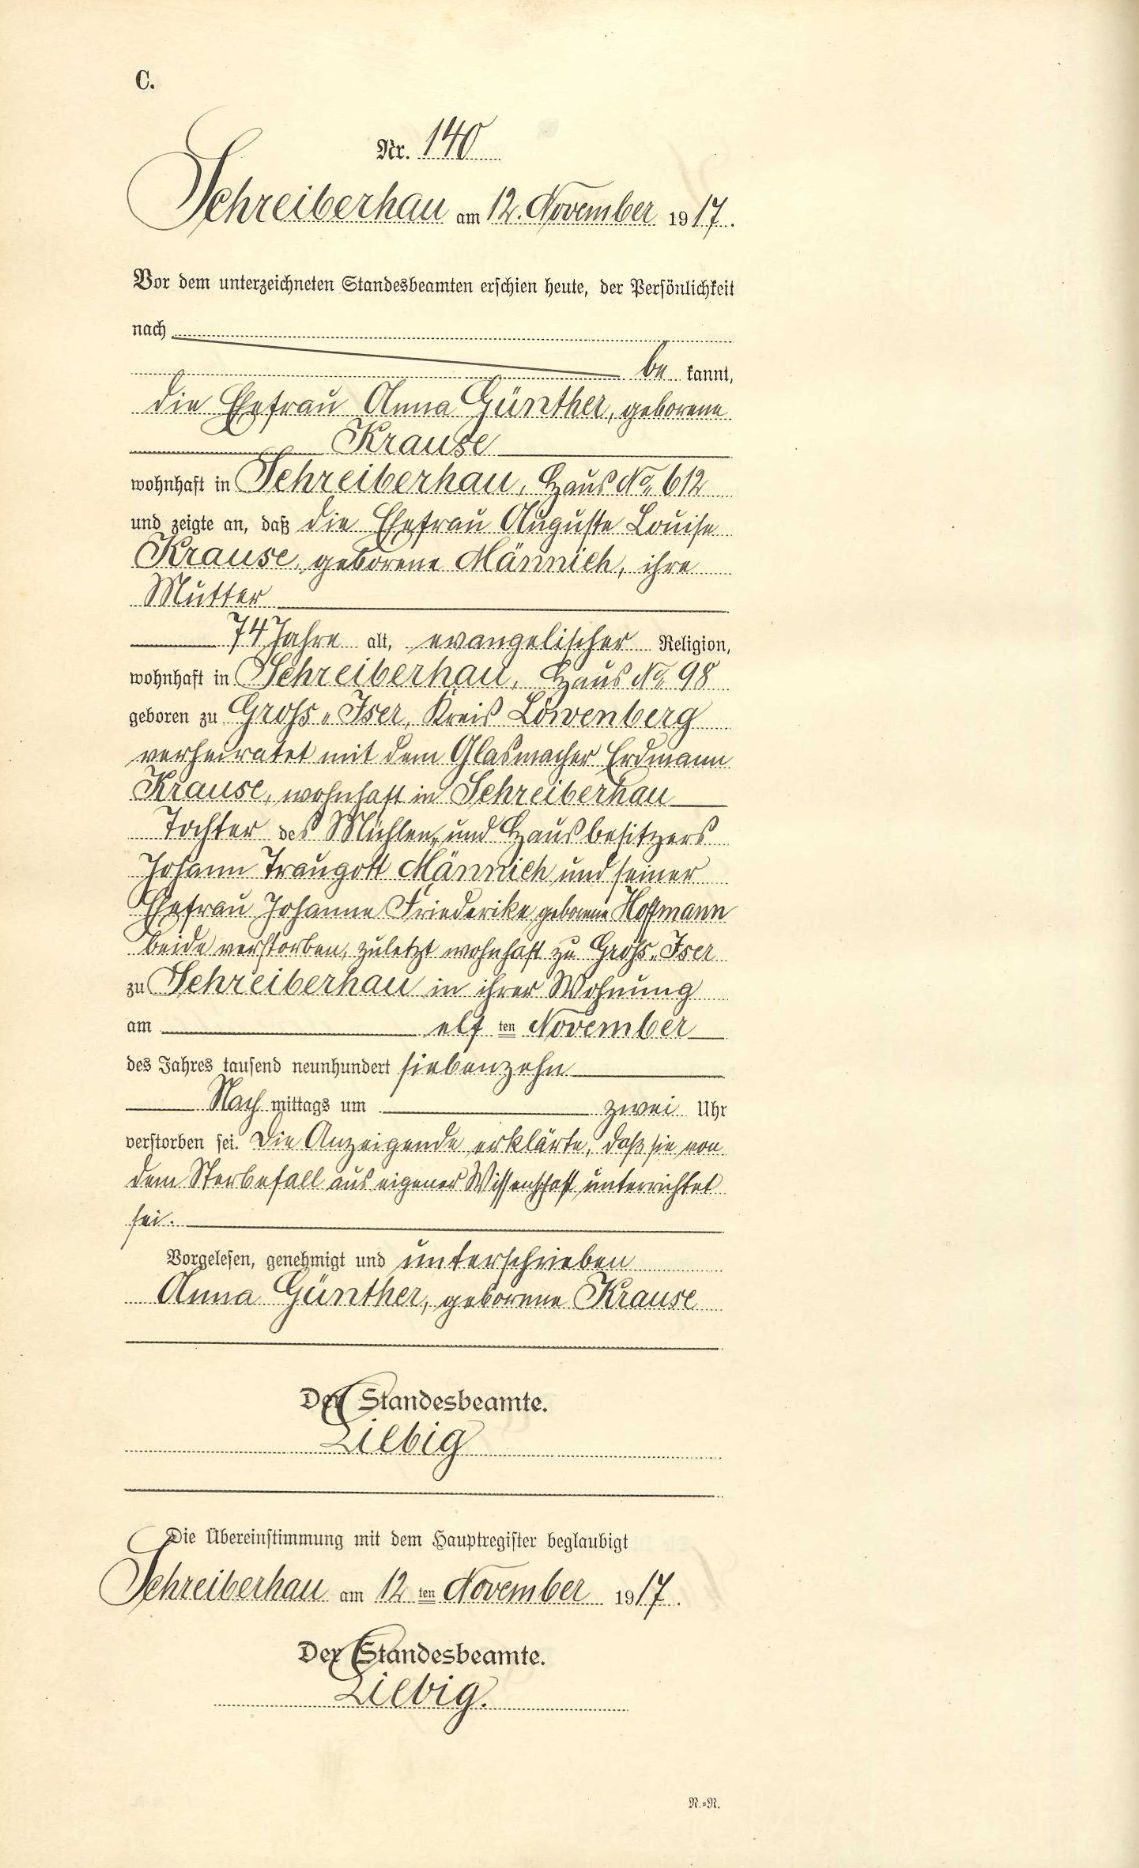 C.
Nr. 140
Schreiberhau am 12. November 1917.
Vor dem unterzeichneten Standesbeamten erschien heute, der Persönlichkeit
nach
be kannt,
die Ehefrau Anna Günther, geborene
Krause
wohnhaft in Schreiberhau, Haus No 612
und zeigte an, daß die Ehefrau Auguste Louise
Krause, geborene Männich, ihre
Mutter
74 Jahre alt, evangelischer Religion,
wohnhaft in Schreiberhau, Haus No 98
geboren zu Gross-Iser, Kreis Löwenberg
verheiratet mit dem Glasmacher Erdmann
Krause, wohnhaft in Schreiberhau
Tochter des Mühlen- und Hausbesitzers
Johann Traugott Männich und seiner
Ehefrau Johanne Friederike geborene Hoffmann
beide verstorben, zuletzt wohnhaft zu Gross-Iser
zu Schreiberhau in ihrer Wohnung
am elf ten November
des Jahres tausend neunhundert siebenzehn
Nach mittags um zwei Uhr
verstorben sei. Die Anzeigende erklärte, daß sie von
dem Sterbefall aus eigener Wissenschaft unterrichtet
sei.
Vorgelesen, genehmigt und unterschrieben
Anna Günther, geborene Krause
Der Standesbeamte.
Liebig
Die Übereinstimmung mit dem Hauptregister beglaubigt
Schreiberhau am 12 ten November 1917.
Der Standesbeamte.
Liebig.
N.=N.